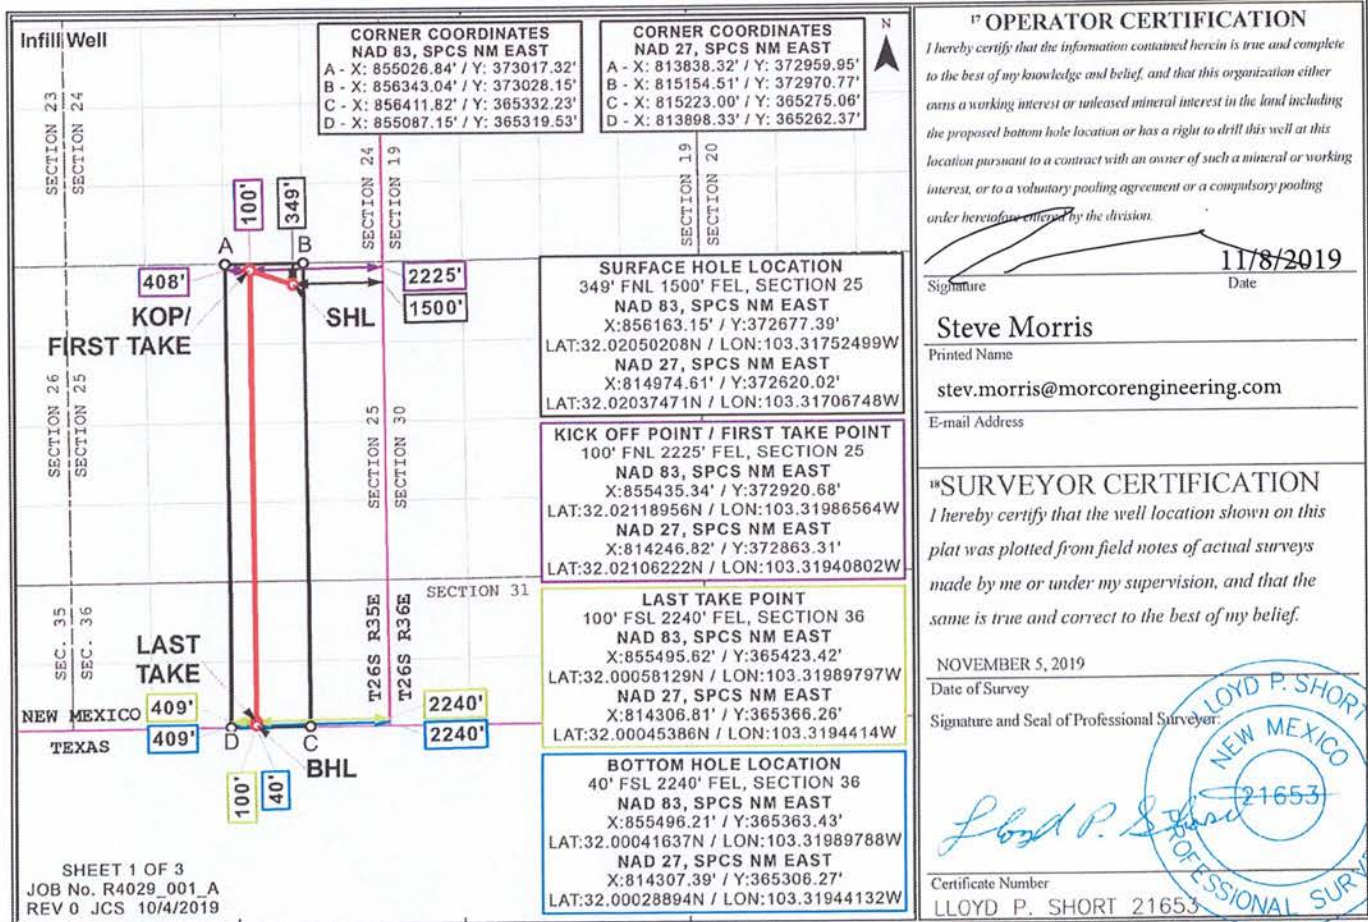 Infill Well
CORNER COORDINATES
NAD 83, SPCS NM EAST
A - X: 855026.84' / Y: 373017.32'
B - X: 856343.04' / Y: 373028.15'
C - X: 856411.82' / Y: 365332.23'
D - X: 855087.15' / Y: 365319.53'
CORNER COORDINATES
NAD 27, SPCS NM EAST
A - X: 813838.32' / Y: 372959.95'
B - X: 815154.51' / Y: 372970.77'
C - X: 815223.00' / Y: 365275.06'
D - X: 813898.33' / Y: 365262.37'
N
SECTION 23
SECTION 24
SECTION 24
SECTION 19
SECTION 19
SECTION 20
100'
349'
A
B
408'
2225'
1500'
KOP/
FIRST TAKE
SHL
SECTION 26
SECTION 25
SECTION 25
SECTION 30
SECTION 31
SEC. 35
SEC. 36
T26S R35E
T26S R36E
LAST
TAKE
NEW MEXICO
TEXAS
409'
409'
2240'
2240'
D
C
BHL
100'
40'
SHEET 1 OF 3
JOB No. R4029_001_A
REV 0 JCS 10/4/2019
SURFACE HOLE LOCATION
349' FNL 1500' FEL, SECTION 25
NAD 83, SPCS NM EAST
X:856163.15' / Y:372677.39'
LAT:32.02050208N / LON:103.31752499W
NAD 27, SPCS NM EAST
X:814974.61' / Y:372620.02'
LAT:32.02037471N / LON:103.31706748W
KICK OFF POINT / FIRST TAKE POINT
100' FNL 2225' FEL, SECTION 25
NAD 83, SPCS NM EAST
X:855435.34' / Y:372920.68'
LAT:32.02118956N / LON:103.31986564W
NAD 27, SPCS NM EAST
X:814246.82' / Y:372863.31'
LAT:32.02106222N / LON:103.31940802W
LAST TAKE POINT
100' FSL 2240' FEL, SECTION 36
NAD 83, SPCS NM EAST
X:855495.62' / Y:365423.42'
LAT:32.00058129N / LON:103.31989797W
NAD 27, SPCS NM EAST
X:814306.81' / Y:365366.26'
LAT:32.00045386N / LON:103.3194414W
BOTTOM HOLE LOCATION
40' FSL 2240' FEL, SECTION 36
NAD 83, SPCS NM EAST
X:855496.21' / Y:365363.43'
LAT:32.00041637N / LON:103.31989788W
NAD 27, SPCS NM EAST
X:814307.39' / Y:365306.27'
LAT:32.00028894N / LON:103.31944132W
17 OPERATOR CERTIFICATION
I hereby certify that the information contained herein is true and complete
to the best of my knowledge and belief, and that this organization either
owns a working interest or unleased mineral interest in the land including
the proposed bottom hole location or has a right to drill this well at this
location pursuant to a contract with an owner of such a mineral or working
interest, or to a voluntary pooling agreement or a compulsory pooling
order heretofore entered by the division.
11/8/2019
Signature
Date
Steve Morris
Printed Name
stev.morris@morcorengineering.com
E-mail Address
18 SURVEYOR CERTIFICATION
I hereby certify that the well location shown on this
plat was plotted from field notes of actual surveys
made by me or under my supervision, and that the
same is true and correct to the best of my belief.
NOVEMBER 5, 2019
Date of Survey
Signature and Seal of Professional Surveyor:
Lloyd P. Short
LLOYD P. SHORT
NEW MEXICO
21653
PROFESSIONAL SURV
Certificate Number
LLOYD P. SHORT 21653